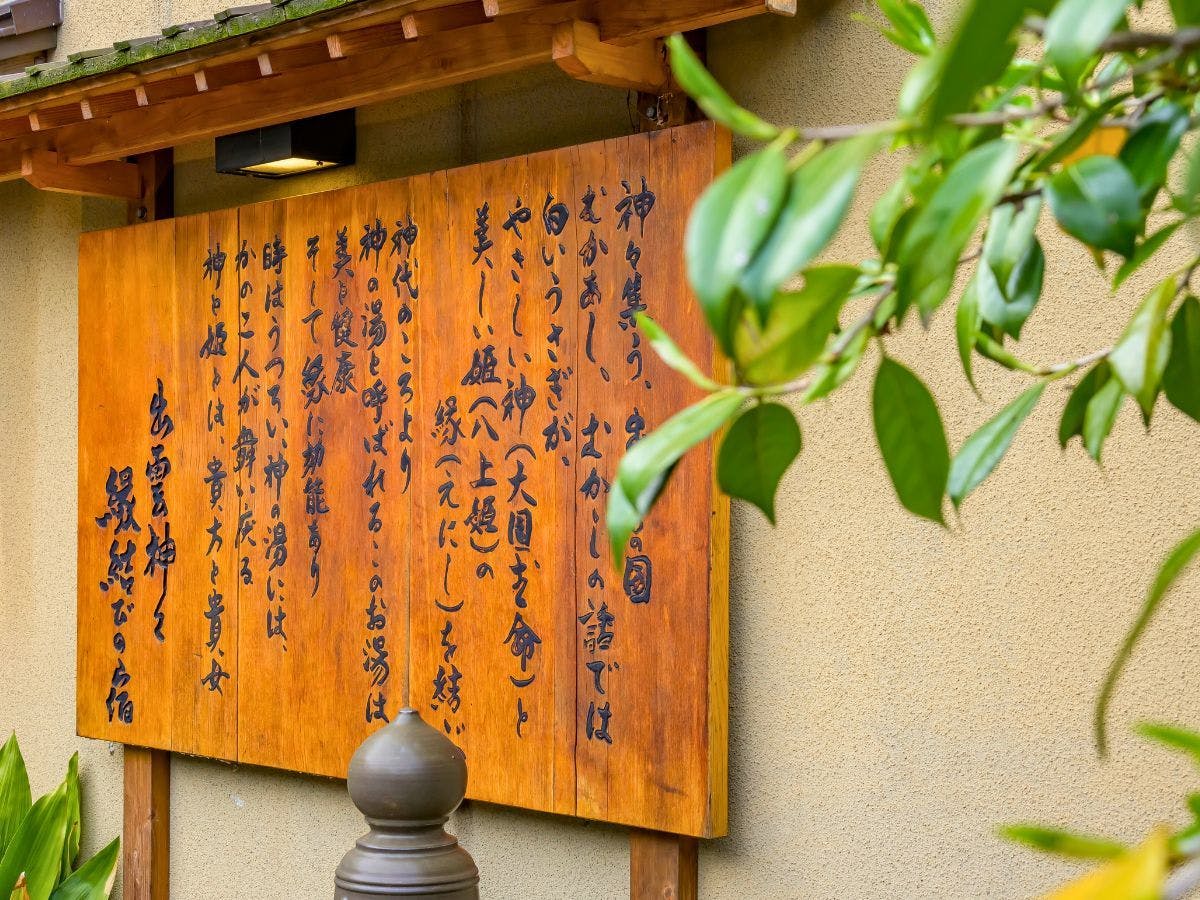 神々集う、の國
むかあし、むかしの話では
白いうさぎが、
やさしい神(大国主命)と
美しい姫(八上姫)の
縁(えにし)を結び
神代のころより
神の湯と呼ばれるこのお湯は
美と健康
そして縁に効能あり
時はうつろい、神の湯には、
かの二人が舞い戻る
神と姫とは、貴方と貴女
出雲神々
縁結びの宿